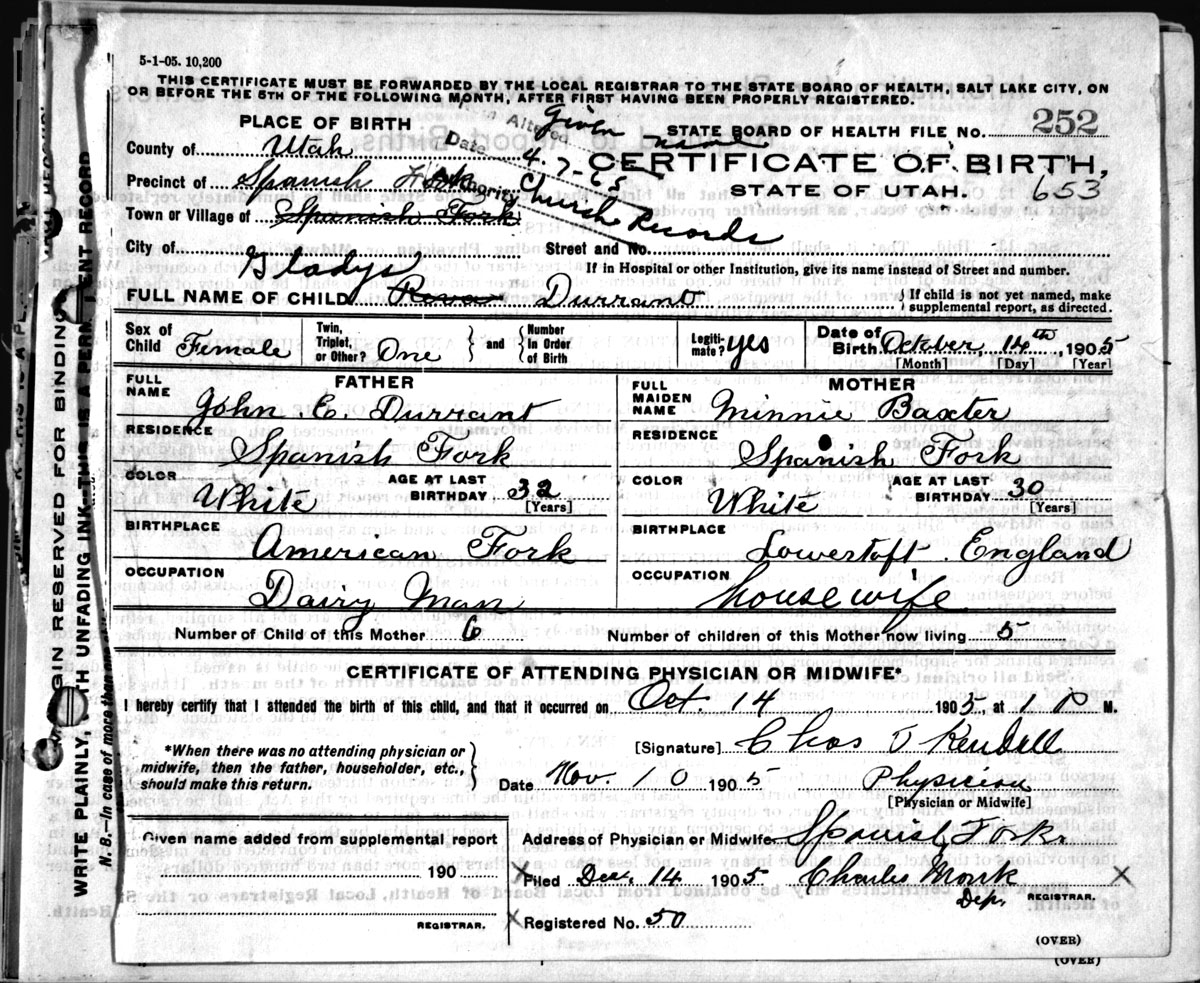 5-1-05. 10,200
THIS CERTIFICATE MUST BE FORWARDED BY THE LOCAL REGISTRAR TO THE STATE BOARD OF HEALTH, SALT LAKE CITY, ON
OR BEFORE THE 5TH OF THE FOLLOWING MONTH, AFTER FIRST HAVING BEEN PROPERLY REGISTERED.
PLACE OF BIRTH
Altered Given name
STATE BOARD OF HEALTH FILE NO. 252
County of Utah
Date 4-7-65
CERTIFICATE OF BIRTH,
Precinct of Spanish Fork
Authority Church Records
STATE OF UTAH. 653
Town or Village of Spanish Fork
City of Street and No.
If in Hospital or other Institution, give its name instead of Street and number.
Gladys
FULL NAME OF CHILD Durrant { If child is not yet named, make supplemental report, as directed.
Sex of Child Female Twin, Triplet, or Other? One } and { Number In Order of Birth Legiti-mate? yes Date of Birth October, 14th, 1905
[Month] [Day] [Year]
FATHER MOTHER
FULL NAME John E. Durrant FULL MAIDEN NAME Minnie Baxter
RESIDENCE Spanish Fork RESIDENCE Spanish Fork
COLOR White AGE AT LAST BIRTHDAY 32 [Years] COLOR White AGE AT LAST BIRTHDAY 30 [Years]
BIRTHPLACE American Fork BIRTHPLACE Lowertoft. England
OCCUPATION Dairy Man OCCUPATION housewife
Number of Child of this Mother 6 Number of children of this Mother now living 5
CERTIFICATE OF ATTENDING PHYSICIAN OR MIDWIFE*
I hereby certify that I attended the birth of this child, and that it occurred on Oct. 14 1905, at 1 P M.
*When there was no attending physician or midwife, then the father, householder, etc., should make this return. }
[Signature] Chas Kendall
Date Nov. 10 1905 Physician
[Physician or Midwife]
Given name added from supplemental report
190
REGISTRAR.
Address of Physician or Midwife Spanish Fork.
X Filed Dec. 14 1905 Charles Monk X
Dep. REGISTRAR.
X Registered No. 50
(OVER)
(OVER)
GIN RESERVED FOR BINDING
WRITE PLAINLY, TH UNFADING INK-THIS IS A PERM ENT RECORD
N.B.—In case of more than